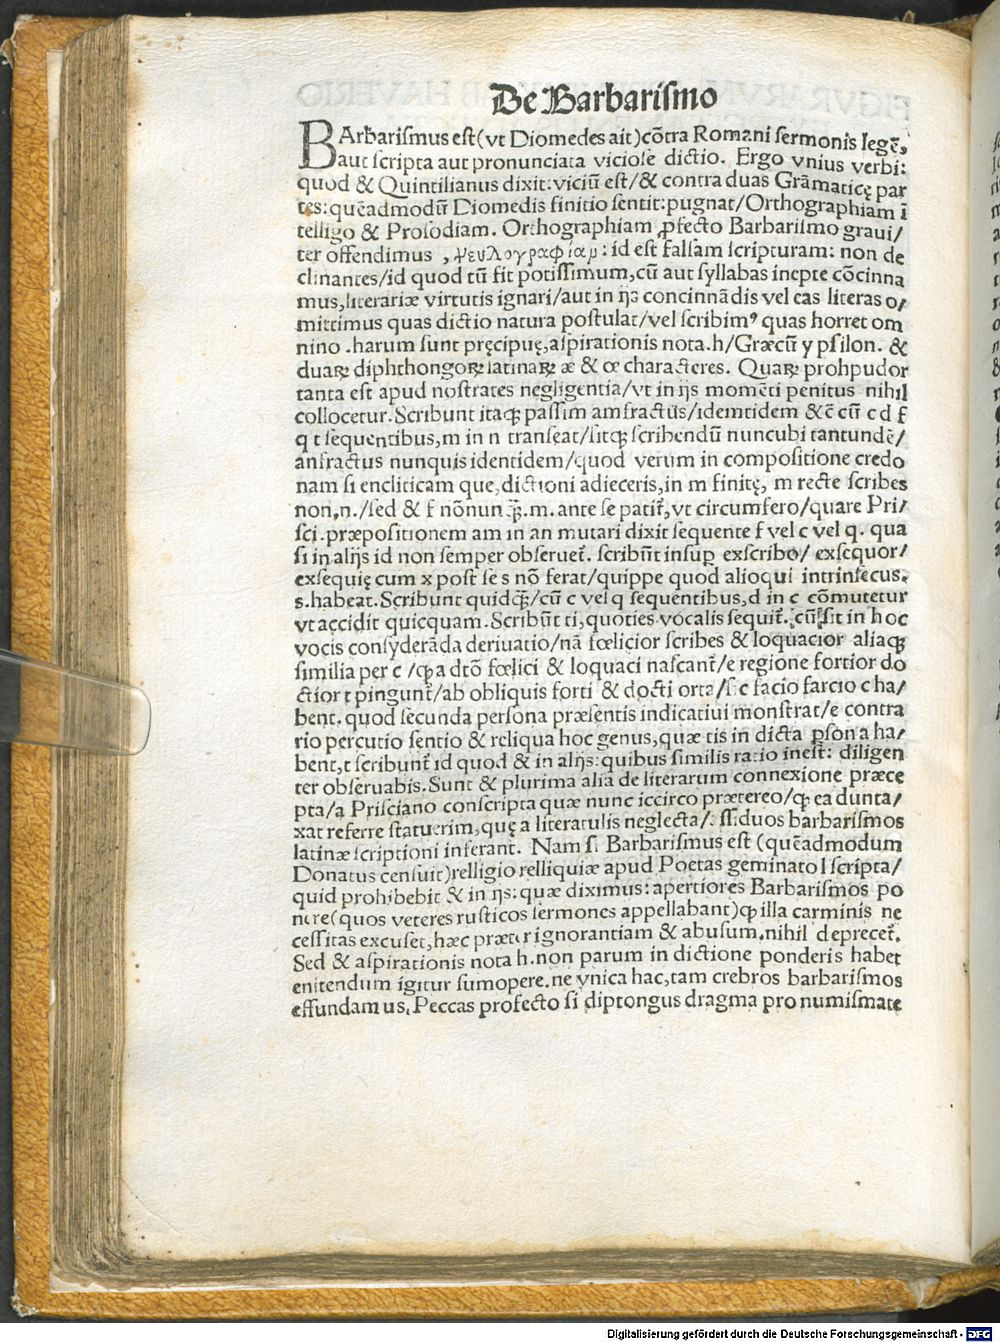 De Barbariſmo
BArbariſmus eſt(vt Diomedes ait)cõtra Romani ſermonis legẽ,
aut ſcripta aut pronunciata vicioſe dictio. Ergo vnius verbi:
quod & Quintilianus dixit:viciũ eſt/& contra duas Grãmaticę par
tes:quẽadmodũ Diomedis finitio ſentit:pugnat/Orthographiam ĩ
telligo & Proſodiam. Orthographiam ꝓfecto Barbariſmo graui/
ter offendimus , ψευλογραφίαμ: id eſt falſam ſcripturam: non de
clinantes/id quod tũ fit potiſſimum,cũ aut ſyllabas inepte cõcinna
mus,literariæ virtutis ignari/aut in ijs concinnãdis vel eas literas o/
mittimus quas dictio natura poſtulat/vel ſcribimꝰ quas horret om
nino .harum ſunt pręcipuę,aſpirationis nota.h/Græcũ y pſilon. &
duaꝝ diphthongoꝝ latinaꝝ æ & œ characteres. Quaꝝ prohpudor
tanta eſt apud noſtrates negligentia/vt in ijs momẽti penitus nihil
collocetur.Scribunt itaqꝫ paſſim amfractus/idemtidem &c̃ cũ c d f
q t ſequentibus,m in n tranſeat/ſitqꝫ ſcribendũ nuncubi tantundẽ/
anfractus nunquis identidem/quod verum in compoſitione credo
nam ſi encliticam que,dictioni adieceris,in m finitę, m recte ſcribes
non.n./ſed & f nõnunꝗ̃.m.ante ſe patit᷑,vt circumfero/quare Pri/
ſci.præpoſitionem am in an mutari dixit ſequente f vel c vel q. qua
ſi in alijs id non ſemper obſeruet᷑. ſcribũt inſuꝑ exſcribo/ exſequor/
exſequię cum x poſt ſe s nõ ferat/quippe quod alioqui intrinſecus.
s.habeat.Scribunt quidqꝫ/cũ c vel q ſequentibus,d in c cõmutetur
vt accidit quicquam.Scribũt ti,quoties vocalis ſequit᷑. cũ ſit in hoc
vocis conſyderãda deriuatio/nã fœlicior ſcribes & loquacior aliaqꝫ
ſimilia per c /ꝙ a dtõ fœlici & loquaci naſcant᷑/e regione fortior do
ctior t pingunt᷑/ab obliquis forti & docti orta/ſic facio farcio c ha/
bent. quod ſecunda perſona præſentis indicatiui monſtrat/e contra
rio percutio ſentio & reliqua hoc genus,quæ tis in dicta ꝑſona ha/
bent,t ſcribunt᷑ id quod & in alijs:quibus ſimilis ratio ineſt: diligen
ter obſeruabis.Sunt & plurima alia de literarum connexione præce
pta/a Priſciano conſcripta quæ nunc iccirco prætereo/ꝙ ea dunta/
xat referre ſtatuerim,quę a literatulis neglecta/ ſſ.duos barbariſmos
latinæ ſcriptioni inferant. Nam ſi Barbariſmus eſt (quẽadmodum
Donatus cenſuit)relligio relliquiæ apud Poetas geminato l ſcripta/
quid prohibebit & in ijs:quæ diximus:apertiores Barbariſmos po
nere(quos veteres ruſticos ſermones appellabant)ꝙ illa carminis ne
ceſſitas excuſet,hæc præter ignorantiam & abuſum.nihil deprecet᷑.
Sed & aſpirationis nota h.non parum in dictione ponderis habet
enitendum igitur ſumopere.ne vnica hac,tam crebros barbariſmos
effundamus. Peccas profecto ſi diptongus dragma pro numiſmate
Digitalisierung gefördert durch die Deutsche Forschungsgemeinschaft - DFG